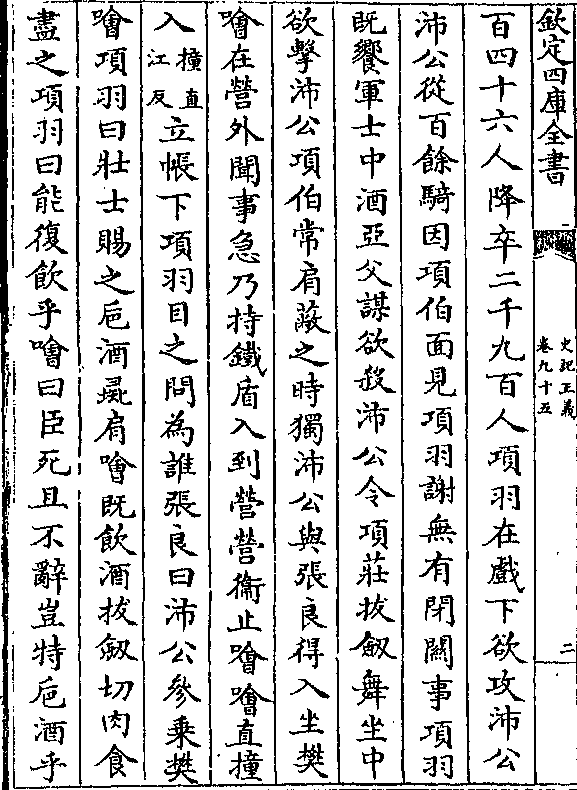 欽定四庫全書
史記正義
卷九十五
二
百四十六人降卒二千九百人項羽在戲下欲攻沛公
沛公從百餘騎因項伯面見項羽謝無有閉關事項羽
既饗軍士中酒亞父謀欲殺沛公令項莊拔劔舞坐中
欲擊沛公項伯常肩蔽之時獨沛公與張良得入坐樊
噲在營外聞事急乃持鐵盾入到營營衞止噲噲直撞
入撞直江反立帳下項羽目之問為誰張良曰沛公參乗樊
噲項羽曰壯士賜之卮酒彘肩噲既飲酒拔劔切肉食
盡之項羽曰能復飲乎噲曰臣死且不辭豈特卮酒乎